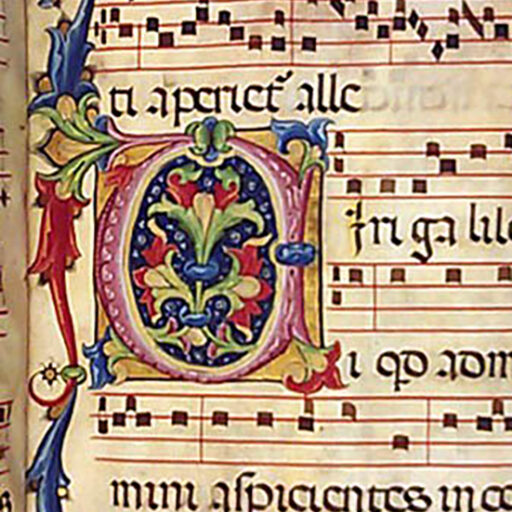 ti aperiet᷑ alle
Viri galile
i qd admi
mini aspicientes in ce